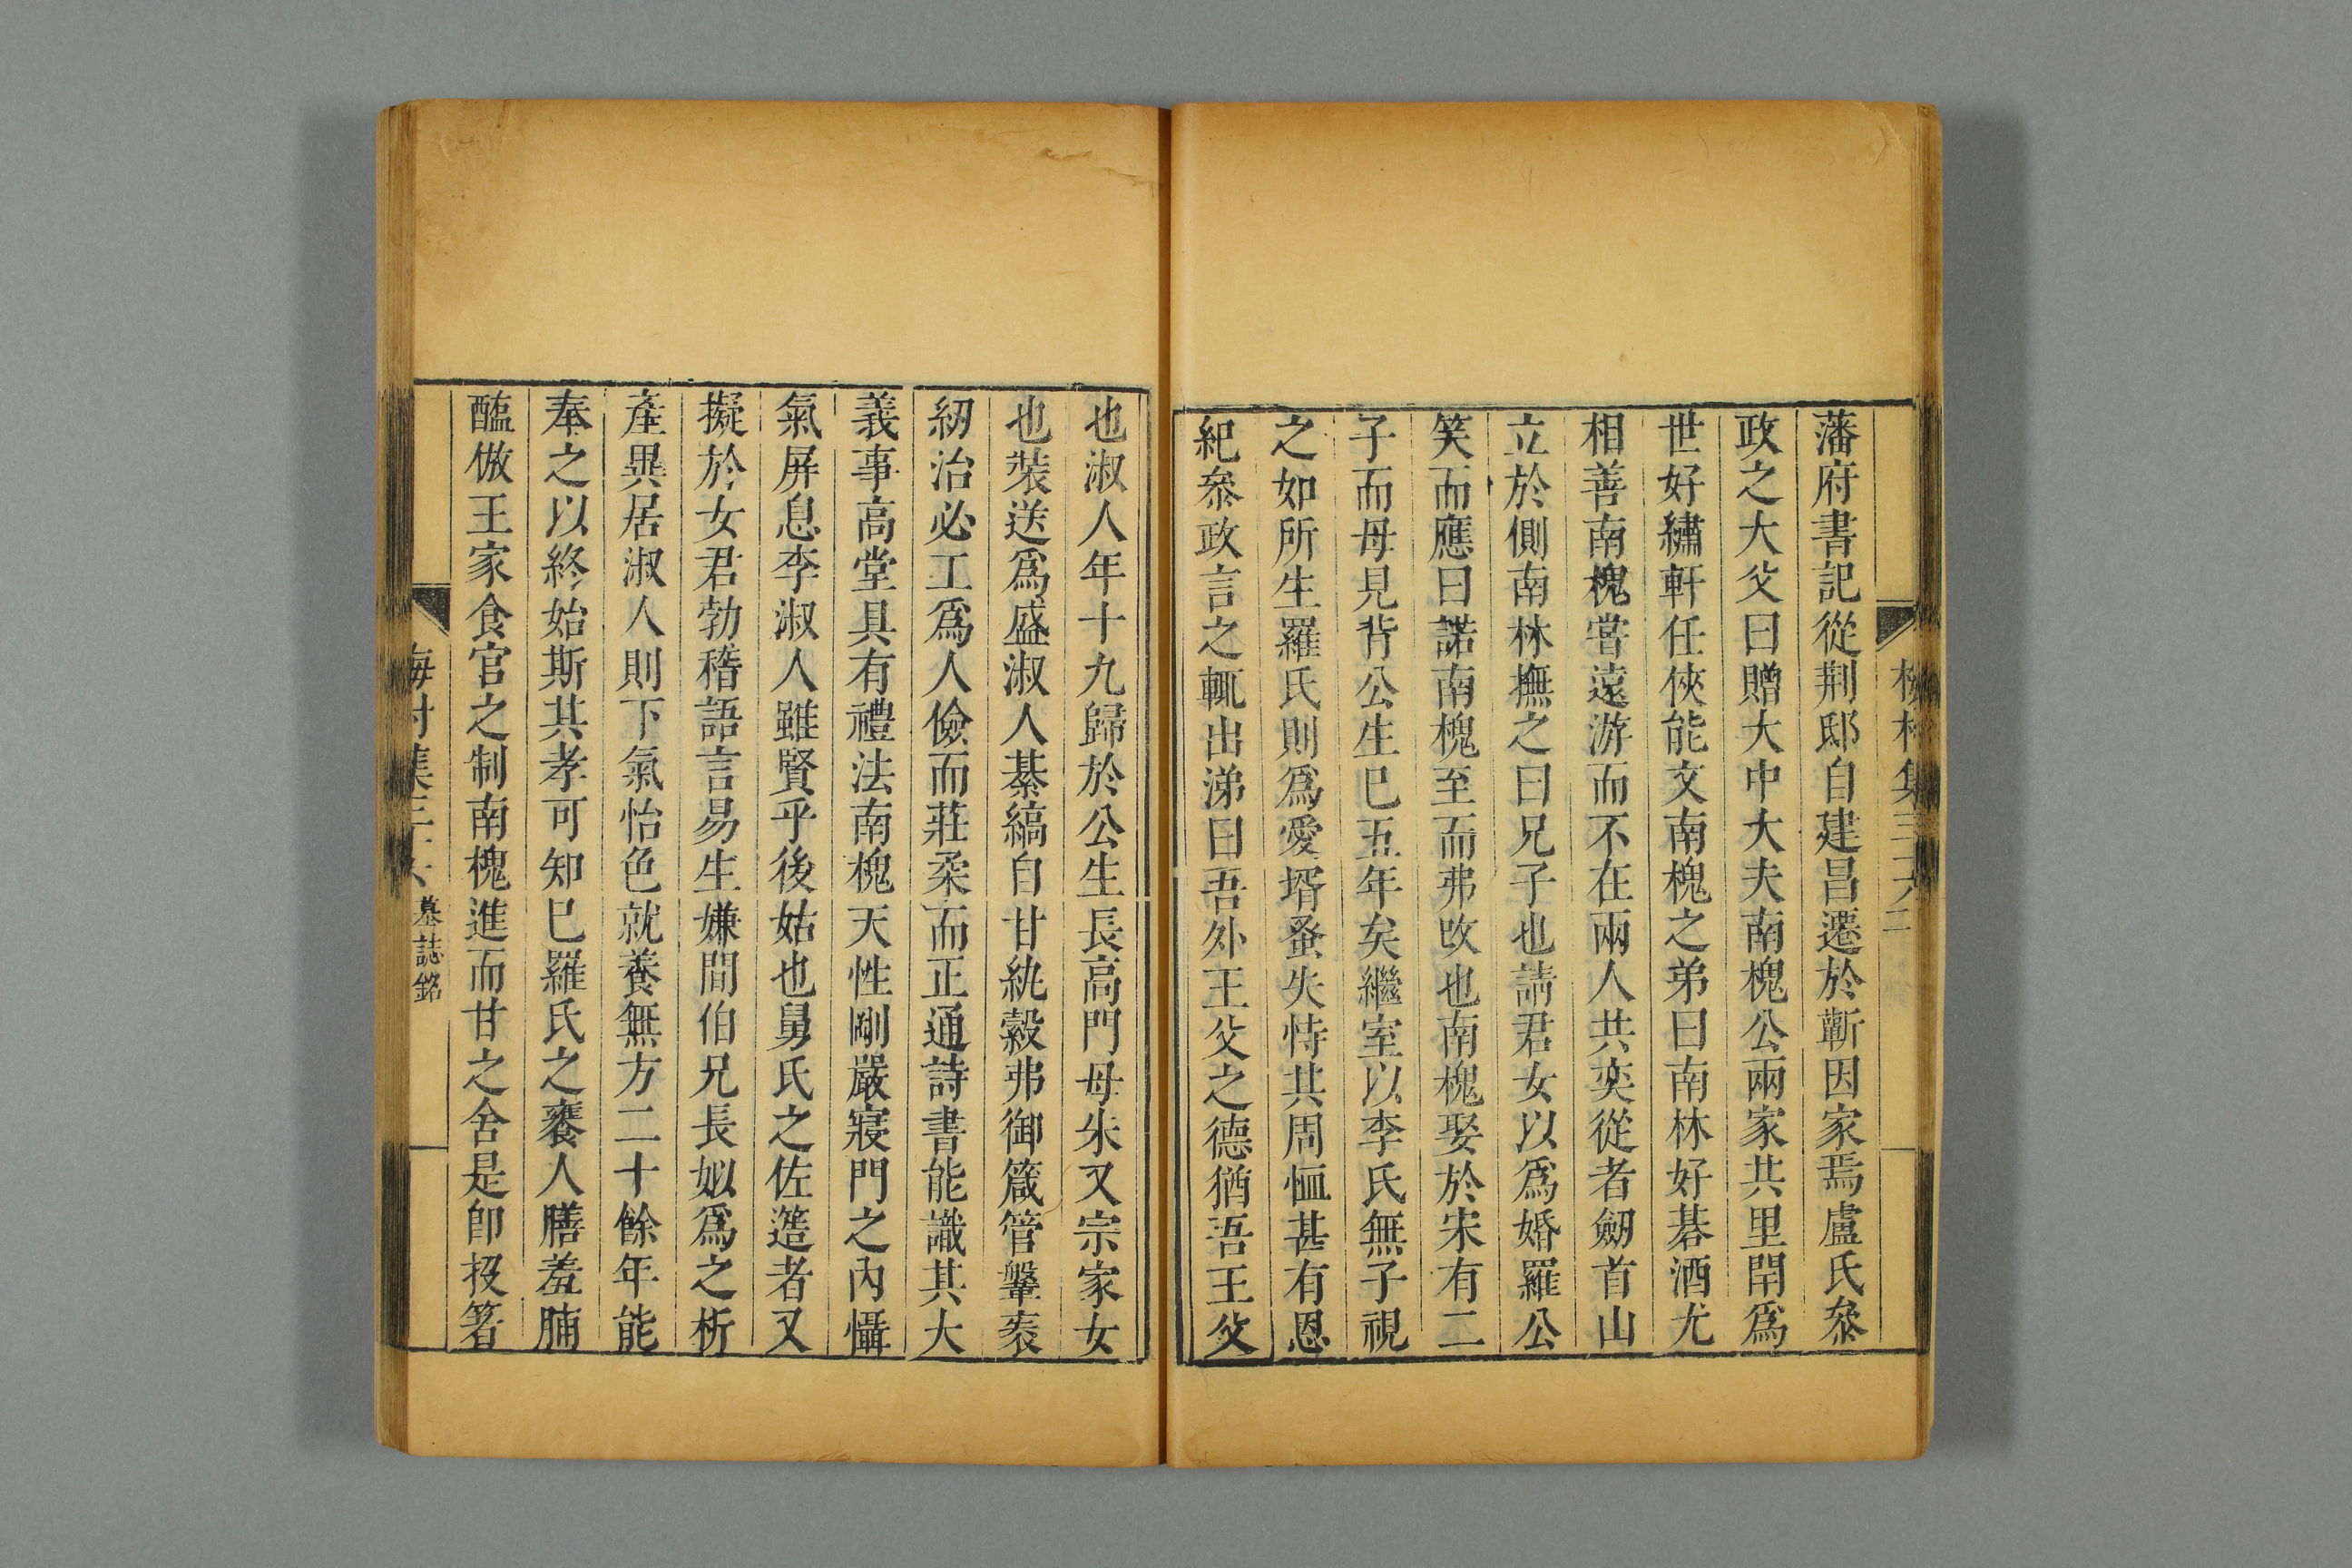 藩府書記從荆邸自建昌遷於蘄因家焉盧氏叅
政之大父曰贈大中大夫南槐公兩家共里閈爲
世好繡軒任俠能文南槐之弟曰南林好碁酒尤
相善南槐嘗遠游而不在兩人共奕從者劒首山
立於側南林撫之曰兄子也請君女以爲婚羅公
笑而應曰諾南槐至而弗攺也南槐娶於宋有二
子而母見背公生巳五年矣繼室以李氏無子視
之如所生羅氏則爲愛壻蚤失恃其周恤甚有恩
紀叅政言之輒出涕曰吾外王父之德猶吾王父
也淑人年十九歸於公生長高門母朱又宗家女
也裝送爲盛淑人綦縞自甘紈縠弗御箴管鞶袠
紉治必工爲人儉而莊柔而正通詩書能識其大
義事高堂具有禮法南槐天性剛嚴寢門之內懾
氣屏息李淑人雖賢乎後姑也舅氏之佐簉者又
擬於女君勃稽語言易生嫌間伯兄長姒爲之析
產異居淑人則下氣怡色就養無方二十餘年能
奉之以終始斯其孝可知巳羅氏之饔人膳羞脯
醢倣王家食官之制南槐進而甘之舍是卽投箸
墓誌銘